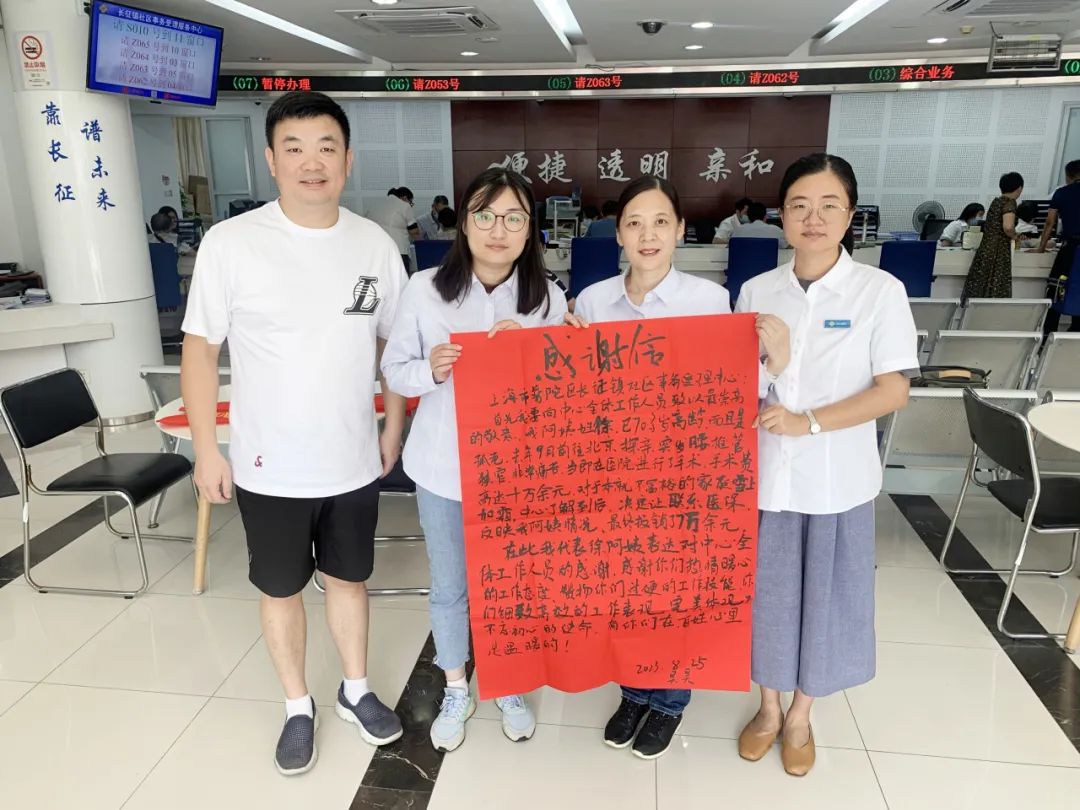 长征镇社区事务受理服务中心
请 S010 号到 11 窗口
请 Z065 号到 10 窗口
请 Z064 号到 08 窗口
请 Z063 号到 05 窗口
请 Z062 号到 04 窗口
(07) 暂停办理
(06) 请Z063号
(05) 请Z063号
(04) 请Z062号
(03) 综合业务
禁止吸烟
靠长征
谱未来
便捷 透明 亲和
感谢信
上海市普陀区长征镇社区事务受理中心:
首先我要向中心全体工作人员致以最崇高
的敬意。我阿姨姓徐,已70多岁高龄,而且是
孤老。去年9月前往北京探亲突发腰椎管
狭窄,非常痛苦,当即在医院进行了手术,手术费
高达十万余元,对于本就不富裕的家庭雪上
加霜,中心了解到后,决定让联系医保,
反映我阿姨情况,最终报销了7万余元。
在此我代表徐阿姨表达对中心全
体工作人员的感谢,感谢你们热情暖心
的工作态度,感谢你们过硬的工作技能,你
们细致高效的工作表现,完美体现了
不忘初心的使命,有你们在,百姓心里
是温暖的!
2023.8.25